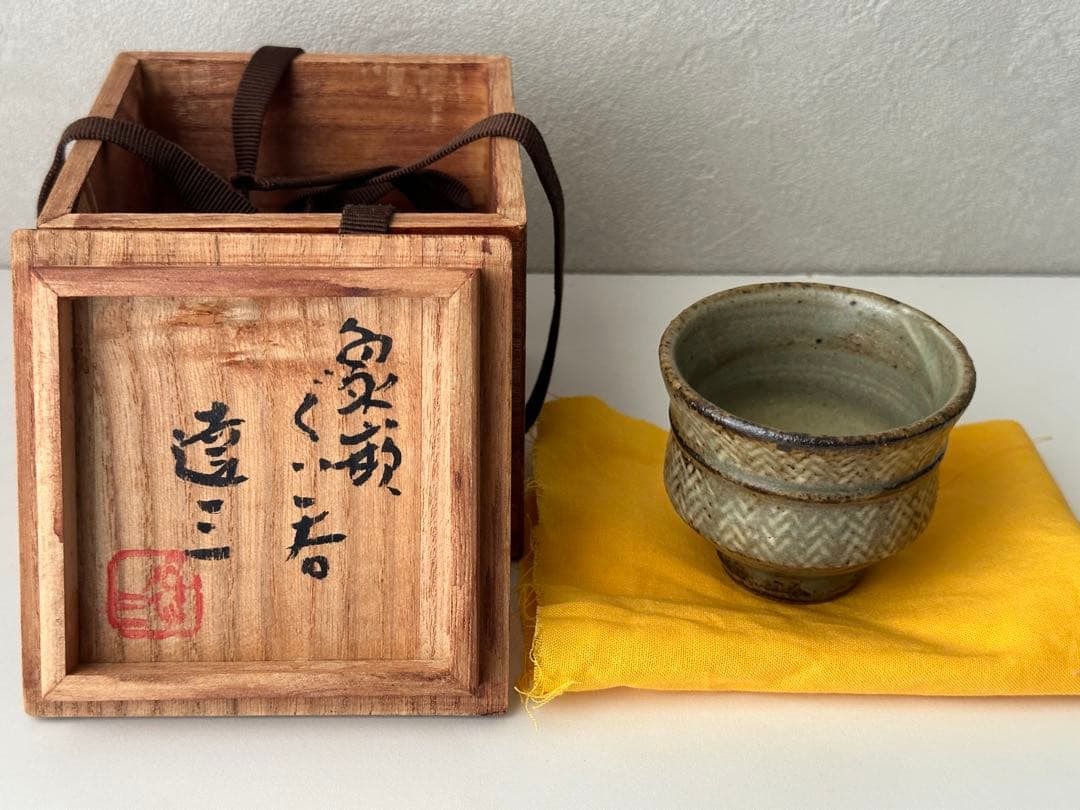 象嵌
ぐい呑
達三